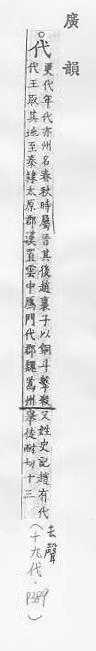 廣韻
代
更代年代亦州名春秋時屬晉其後趙襄子以銅斗擊殺
代王取其地至秦𨽻太原郡漢置雲中鴈門代郡魏爲州
又姓史記趙有代
舉徒耐切十三
去聲
(十九代·P389)